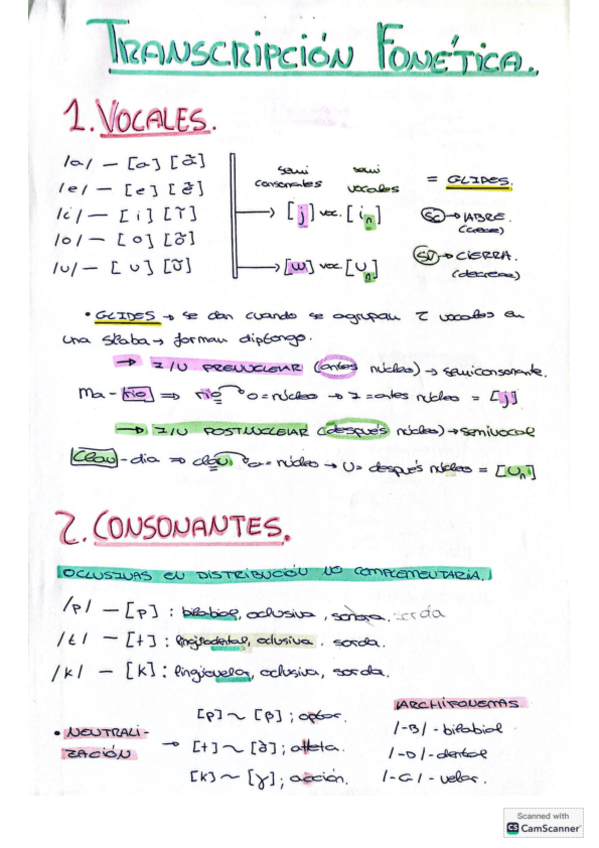 TRANSCRIPCIÓN FONÉTICA.
1. VOCALES.
/a/ — [a] [ã]
/e/ — [e] [ẽ]
/i/ — [i] [ĩ]
/o/ — [o] [õ]
/u/ — [u] [ũ]
semi consonantes semi vocales = GLIDES.
→ [j] voc. [i̯]
→ [w] voc [u̯]
SC → ABRE. (crece)
SV → CIERRA. (decrece)
• GLIDES → se dan cuando se agrupan 2 vocales en
una sílaba → forman diptongo.
→ I/U PRENUCLEAR (antes núcleo) → semiconsonante.
Ma - rio ⇒ rio o = núcleo → I = antes núcleo = [j]
→ I/U POSTNUCLEAR (después núcleo) → semivocal
Clau - dia ⇒ clau a = núcleo → U = después núcleo = [u̯]
2. CONSONANTES.
OCLUSIVAS EN DISTRIBUCIÓN NO COMPLEMENTARIA.
/p/ — [p] : bilabial, oclusiva, sonora, sorda
/t/ — [t] : linguodental, oclusiva. sorda.
/k/ — [k] : linguovelar, oclusiva, sorda.
• NEUTRALI-
ZACIÓN →
[p] ~ [β] ; aptar.
[t] ~ [ð] ; atleta.
[k] ~ [ɣ] ; acción.
ARCHIFONEMAS
/-B/ - bilabial
/-D/ - dental
/-G/ - velar.
Scanned with
CS CamScanner